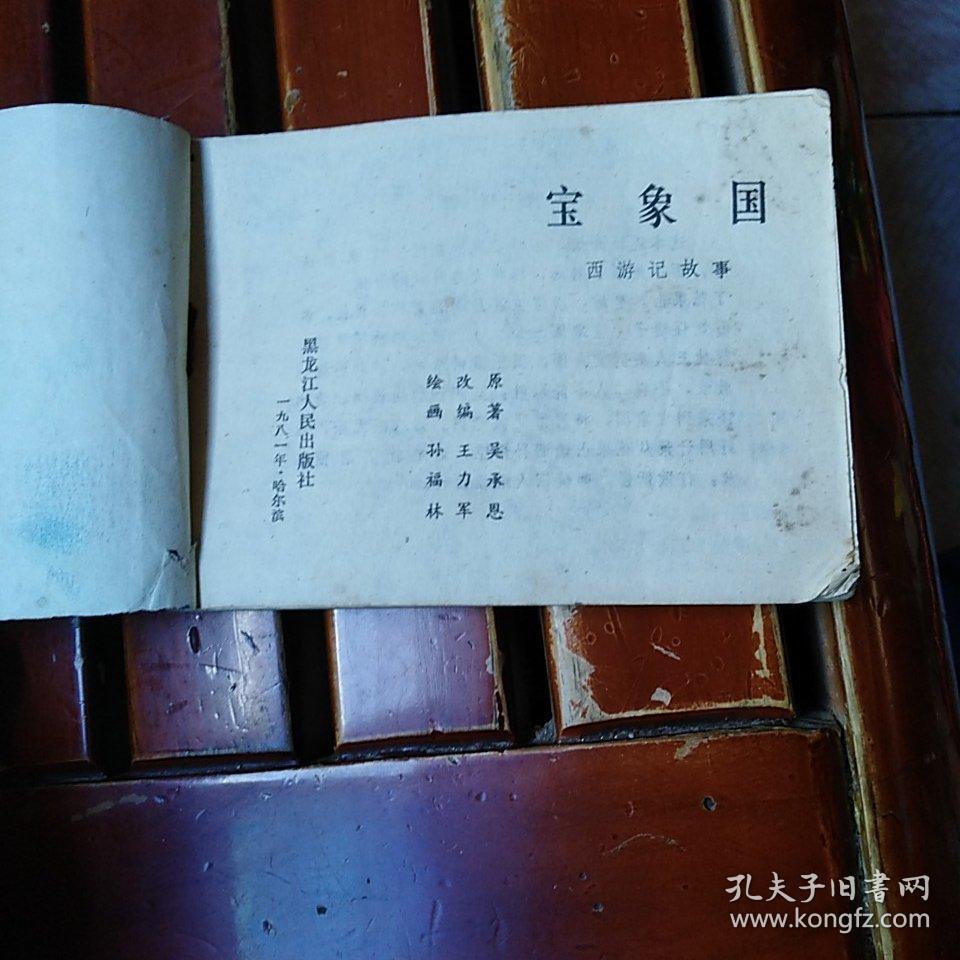 宝象国
西游记故事
原著 吴承恩
改编 王力军
绘画 孙福林
黑龙江人民出版社
一九八一年·哈尔滨
孔夫子旧書网
www.kongfz.com